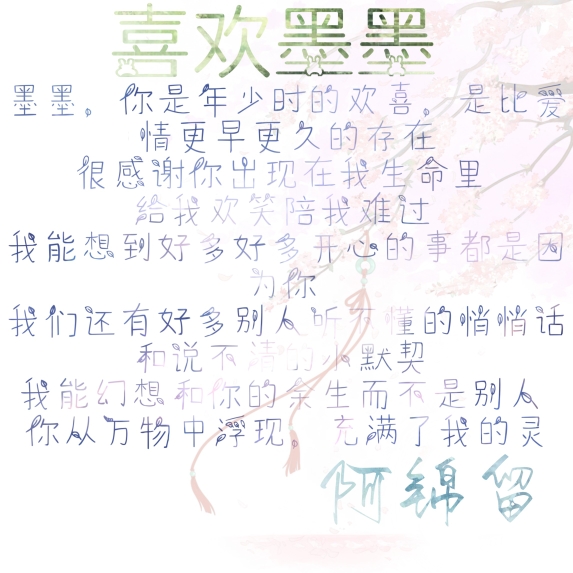 喜欢墨墨
墨墨。你是年少时的欢喜。是比爱
情更早更久的存在
很感谢你出现在我生命里
给我欢笑陪我难过
我能想到好多好多开心的事都是因
为你
我们还有好多别人听不懂的悄悄话
和说不清的小默契
我能幻想和你的余生而不是别人
你从万物中浮现。充满了我的灵
阿锦留